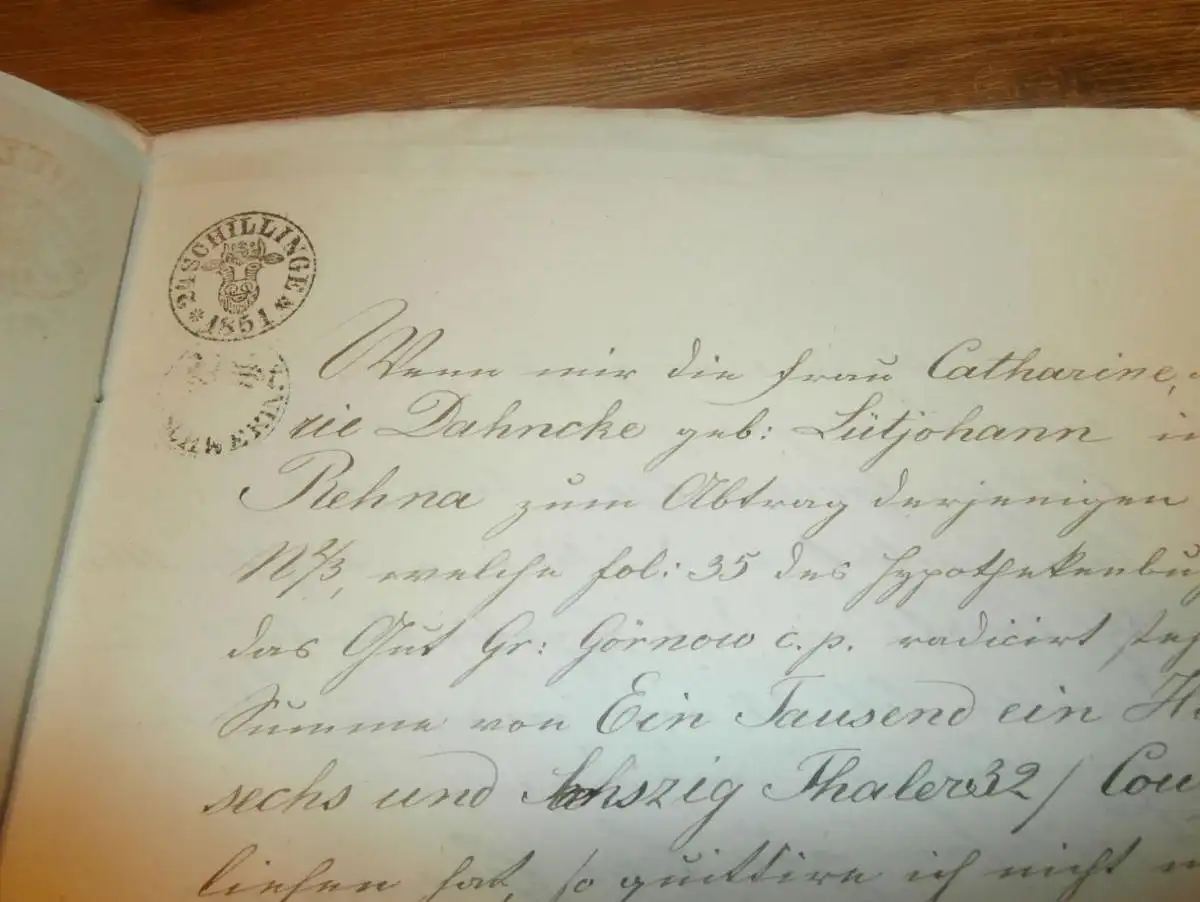 24 SCHILLINGE
* 1851 *
SCHWERIN
Wenn mir die Frau Catharine,
rie Dahncke geb: Lütjohann
Rehna zum Abtrag derjenigen
N 2/3, welche fol: 35 des Hypothekenbu
das Gut Gr: Görnow c. p. radicirt
Summe von Ein Tausend ein H
sechs und Thaler 32 / Cou
liehen hat, so quittire ich nicht